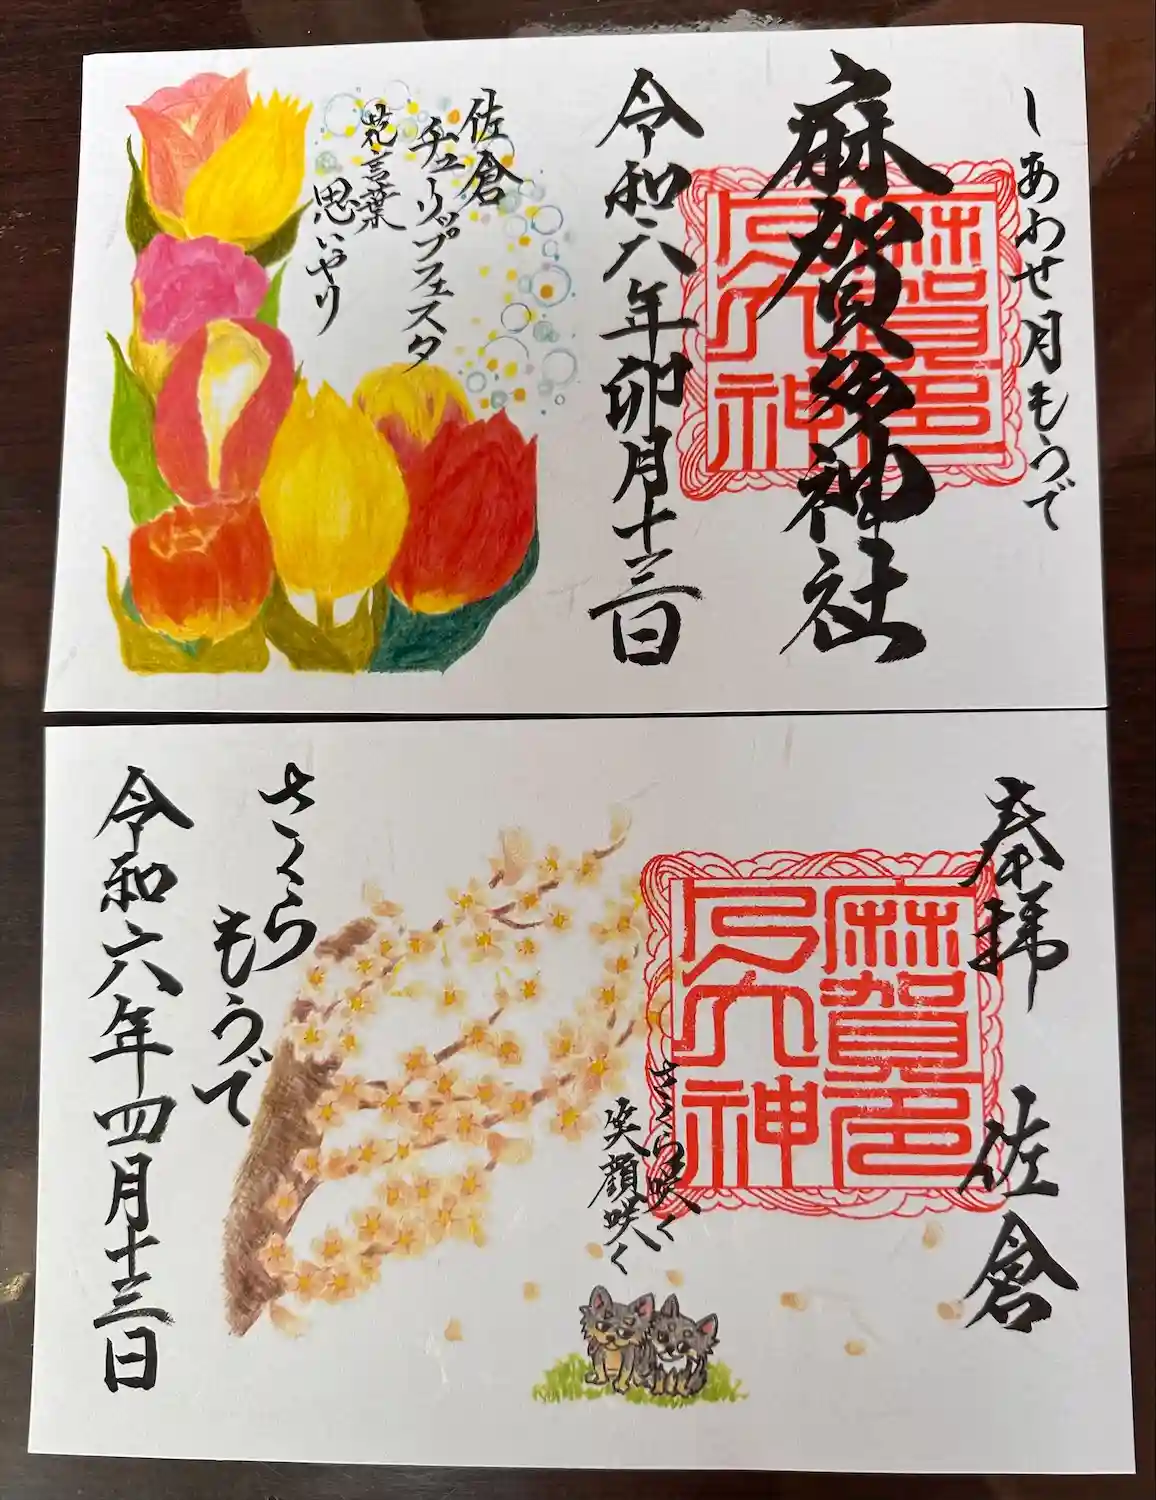 しあわせ月もうで
麻賀多神社
麻賀多
大神
令和六年卯月十三日
佐倉
チューリップフェスタ
花言葉
思いやり
奉拝 佐倉
麻賀多
大神
さくら咲く
笑顔咲く
さくら
もうで
令和六年四月十三日